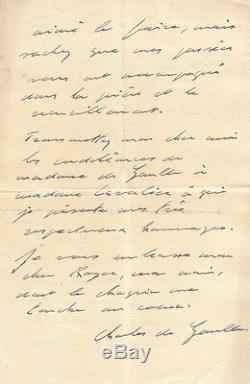 aimé le faire, mais
sachez que mes pensées
vous ont accompagné
dans la prière et le
recueillement.
Transmettez mon cher ami
les condoléances de
madame de Gaulle à
madame à qui
je présente mes très
respectueux hommages.
Je vous embrasse mon
cher Roger, mon ami,
dont le chagrin me
touche au coeur.
Charles de Gaulle